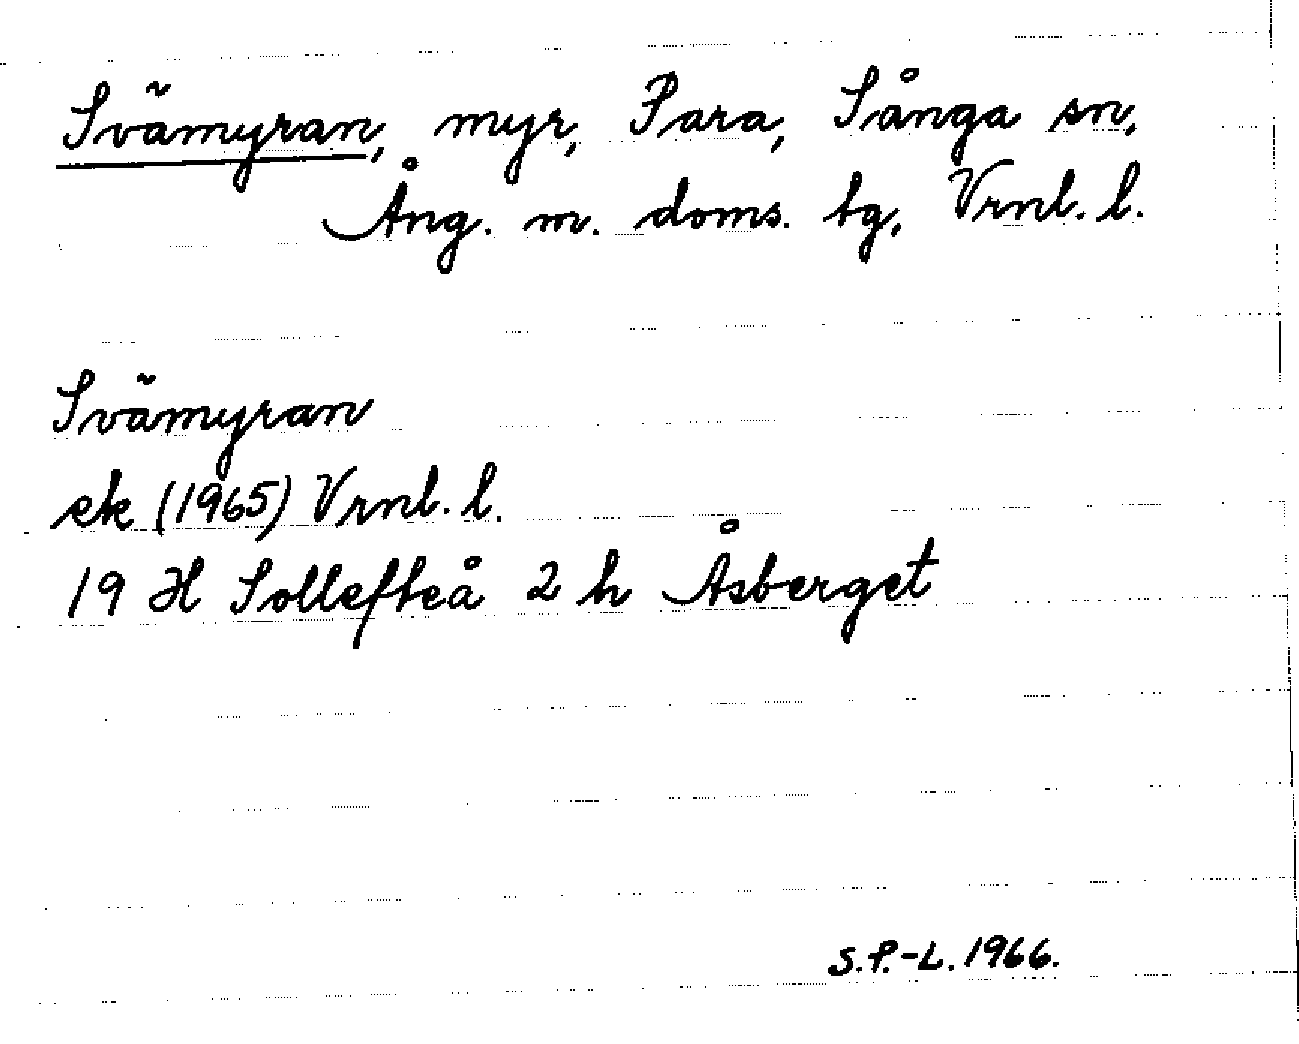 Svämyran, myr, Para, Sånga sn,
Ång. m. doms. tg, Vrnl. l.
Svämyran
ek (1965) Vrnl. l.
19 H Sollefteå 2 h Åsberget
S.P.-L. 1966.